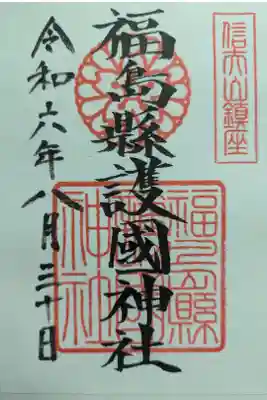 信夫山鎮座
福島縣護國神社
令和六年八月三十日
福島縣護國神社